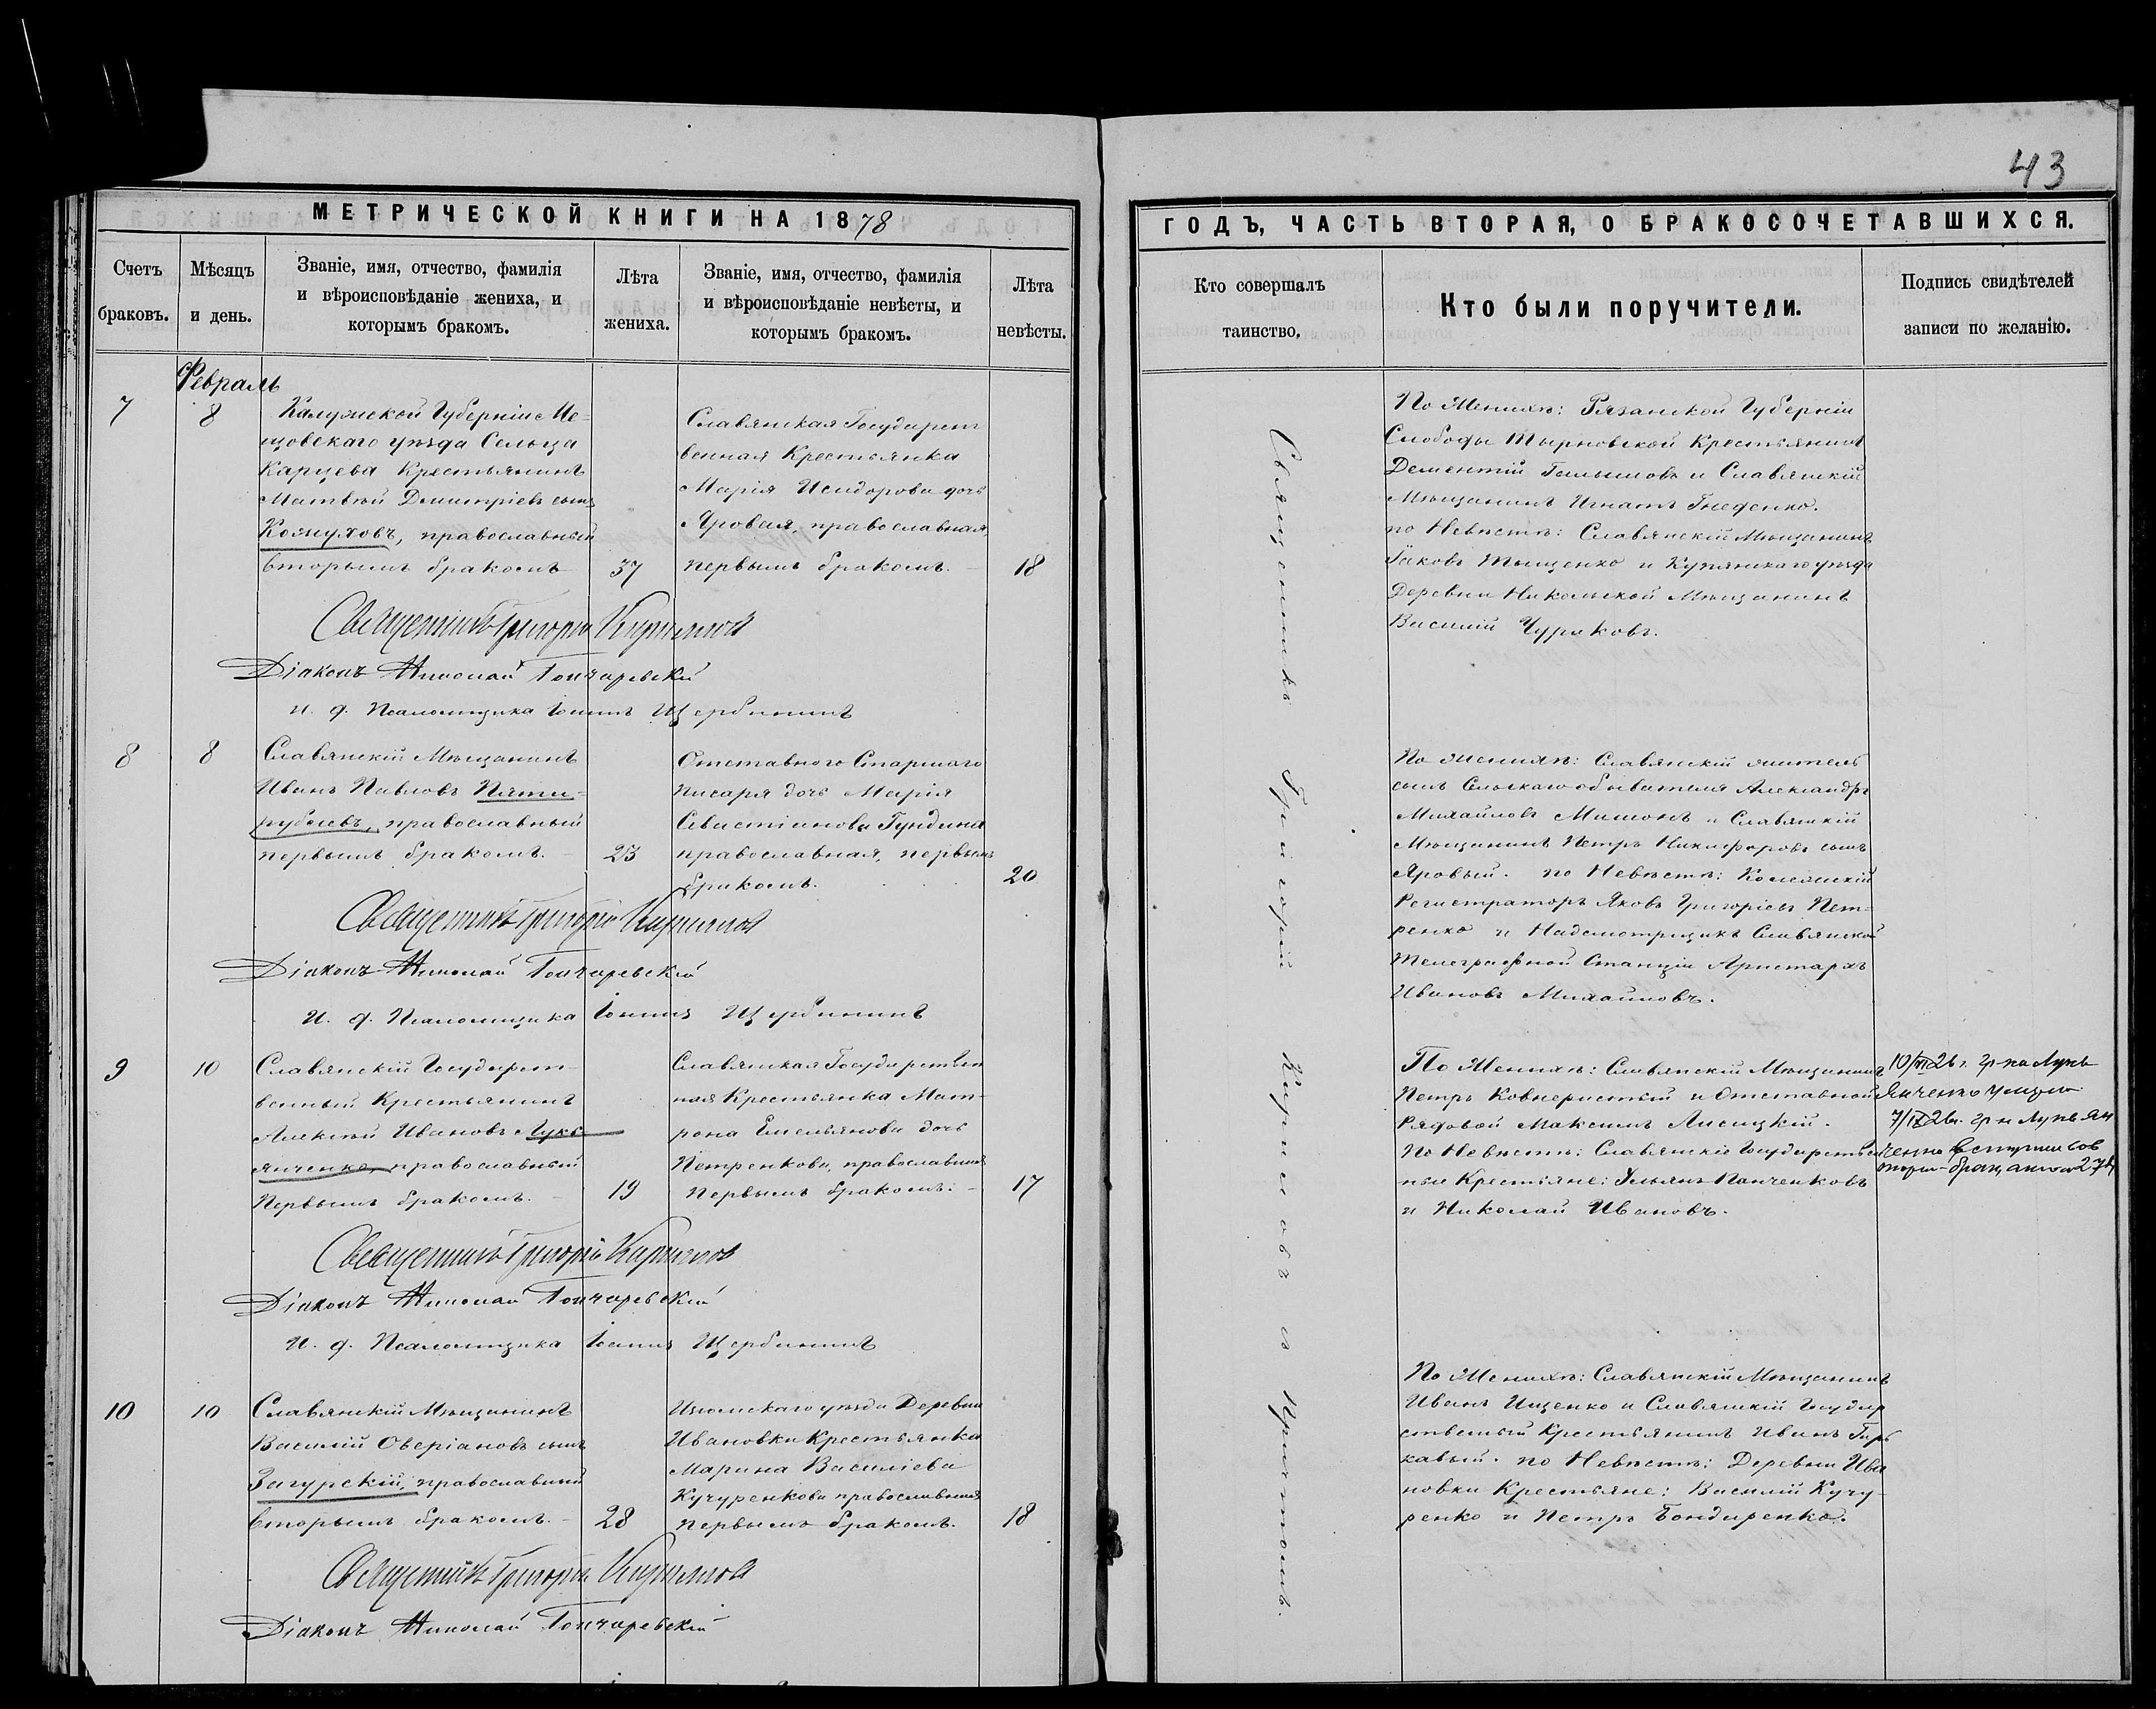 43
МЕТРИЧЕСКОЙ КНИГИ НА 1878
ГОДЪ, ЧАСТЬ ВТОРАЯ, О БРАКОСОЧЕТАВШИХСЯ.
Счетъ браковъ.
Мѣсяцъ и день.
Званіе, имя, отчество, фамилія
и вѣроисповѣданіе жениха, и
которымъ бракомъ.
Лѣта
жениха.
Званіе, имя, отчество, фамилія
и вѣроисповѣданіе невѣсты, и
которымъ бракомъ.
Лѣта
невѣсты.
Кто совершалъ
таинство.
Кто были поручители.
Подпись свидѣтелей
записи по желанію.
Февраль
7
8
Калужской Губерніи Ме-
щовскаго уѣзда Сельца
Карцева Крестьянинъ
Матвѣй Димитріевъ сынъ
православный
вторымъ бракомъ
37
Славянская Государст
венная Крестьянка
Марія Исидорова дочь
Яровая, православная,
первымъ бракомъ.
18
Священникъ Григорій Кириловъ
Діаконъ Николай Гончаревскій
и. д. Псаломщика Іоаннъ Щербининъ
По Женихѣ: Рязанской Губерніи
Слободы Тырновской Крестьянинъ
Дементій и Славянскій
Мѣщанинъ Игнатъ Гнеденко.
по Невѣстѣ: Славянскій Мѣщанинъ
Іаковъ Тыщенко и Купянскаго уѣзда
Деревни Никольской Мѣщанинъ
Василій Чураковъ.
Священникъ Григорій Кириловъ съ Причтомъ.
8
8
Славянскій Мѣщанинъ
Иванъ Павловъ Пяти-
рублевъ, православный
первымъ бракомъ.
23
Отставного Старшаго
писаря дочь Марія
Севастіанова Гундина
православная, первымъ
бракомъ.
20
Священникъ Григорій Кириловъ
Діаконъ Николай Гончаревскій
И. д. Псаломщика Іоаннъ Щербининъ
По женихѣ: Славянскій житель
сынъ Сельскаго обывателя Александръ
Михайловъ Мишонъ и Славянскій
Мѣщанинъ Петръ Никифоровъ сынъ
Яровый. по Невѣстѣ: Колежскій
Регистраторъ Яковъ Григорьевъ Пет-
ренко и Надсмотрщикъ Славянской
Телеграфной Станціи Аристархъ
Ивановъ Михайловъ.
9
10
Славянскій Государст-
венный Крестьянинъ
Алексѣй Ивановъ Лукь
янченко, православный
Первымъ бракомъ.
19
Славянская Государствен
ная Крестьянка Мат-
рона Емельянова дочь
Петренкова, православная
первымъ бракомъ.
17
Священникъ Григорій Кириловъ
Діаконъ Николай Гончаревскій
И. д. Псаломщика Іоаннъ Щербининъ
По Женихѣ: Славянскій Мѣщанинъ
Петръ Ковнеристый и Отставной
Рядовой Максимъ Лисицкій.
По Невѣстѣ: Славянскіе Государствен
ные Крестьяне: Ульянъ Панченковъ
и Николай Ивановъ.
10/ 26 г. гр-на Лукь
янченко
гр-н Лукьян
ченко вступил во
10
10
Славянскій Мѣщанинъ
Василій Оверіановъ сынъ
Загурскій, православный
вторымъ бракомъ.
28
Изюмскаго уѣзда Деревни
Ивановки Крестьянка
Марина Василіева
Кучуренкова православная
первымъ бракомъ.
18
Священникъ Григорій Кириловъ
Діаконъ Николай Гончаревскій
По Женихѣ: Славянскій Мѣщанинъ
Иванъ Ищенко и Славянскій Государ
ственный Крестьянинъ Иванъ Гар
кавый. по Невѣстѣ: Деревни Ива
новки Крестьяне: Василій Кучу-
ренко и Петръ Бондаренко.